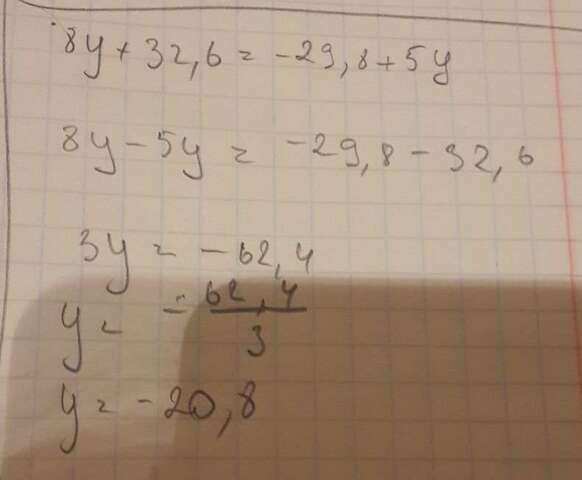 8y + 32,6 = -29,8 + 5y
8y - 5y = -29,8 - 32,6
3y = -62,4
y = - 62,4 / 3
y = -20,8